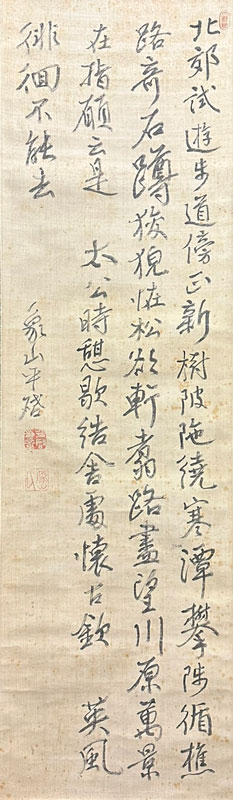 北郊試遊步道傍正新樹陂陁繞寒潭攀陟循樵
路奇石蹲狻猊怪松欲軒翥路盡望川原萬景
在指顧云是 太公時憩歇結舍處懷古欽 英風
徘徊不能去
象山平啓